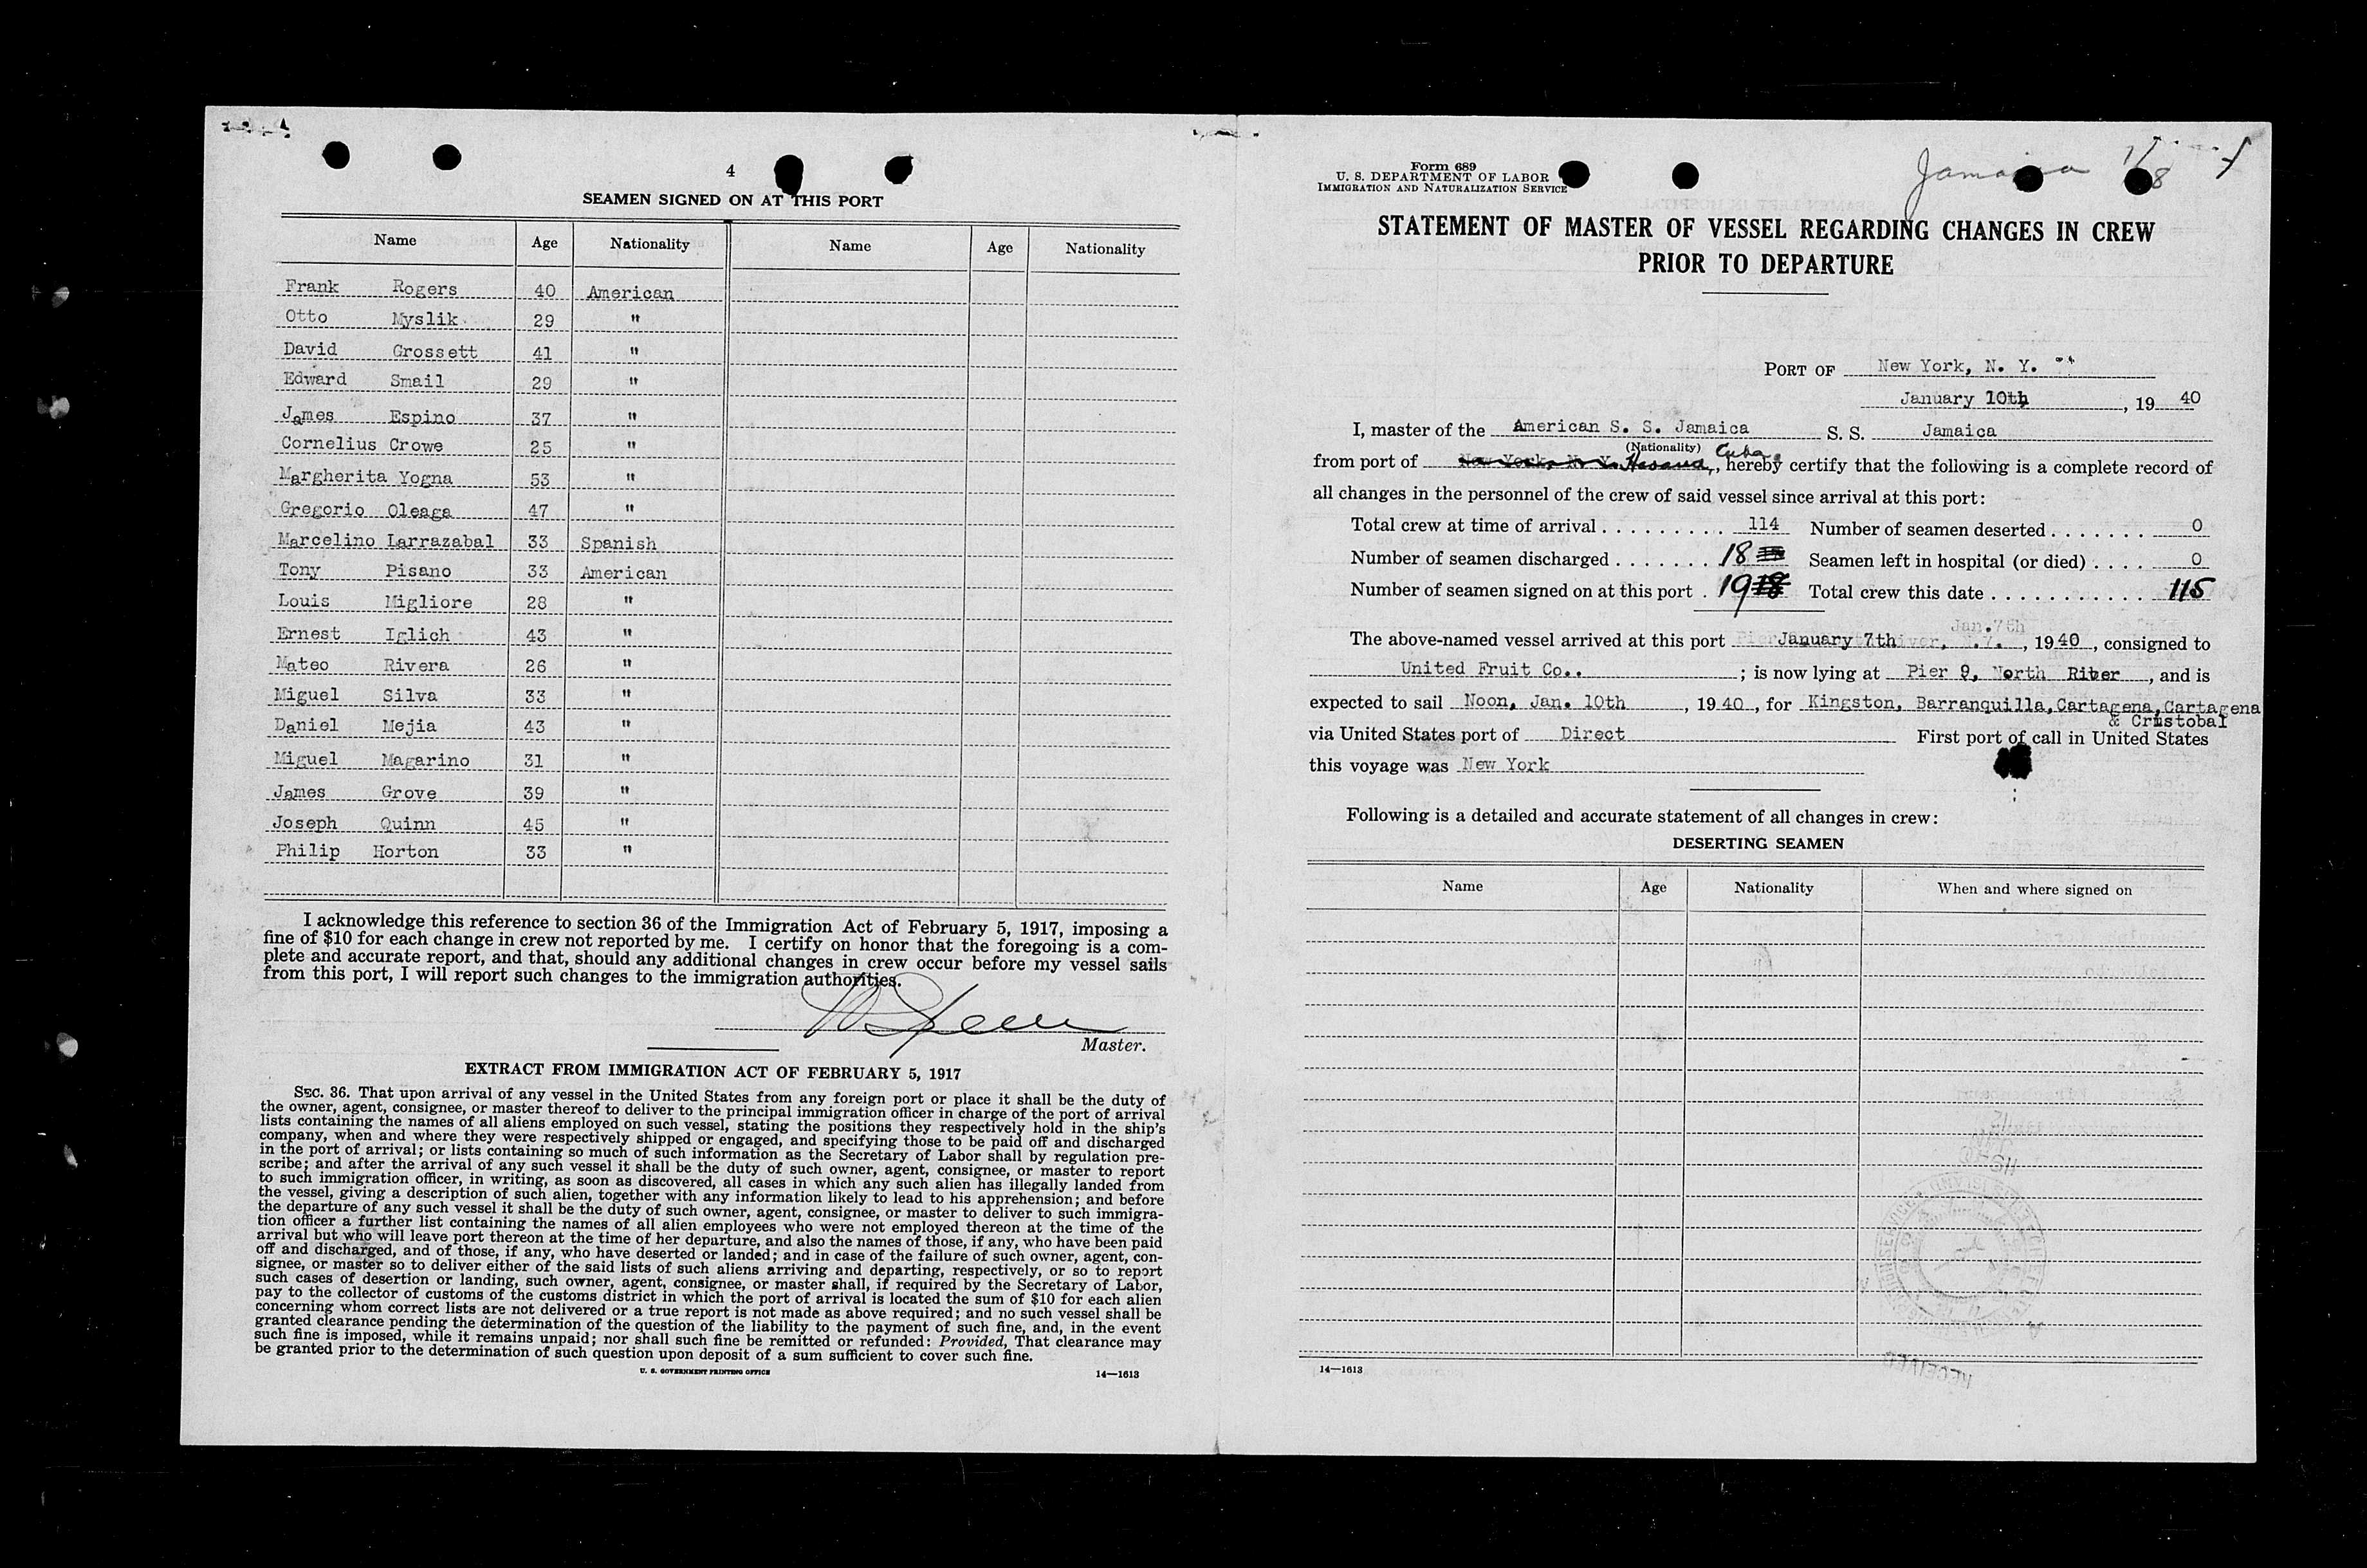 4
SEAMEN SIGNED ON AT THIS PORT
Name Age Nationality Name Age Nationality
Frank Rogers 40 American
Otto Myslik 29 "
David Grossett 41 "
Edward Smail 29 "
James Espino 37 "
Cornelius Crowe 25 "
Margherita Yogna 53 "
Gregorio Oleaga 47 "
Marcelino Larrazabal 33 Spanish
Tony Pisano 33 American
Louis Migliore 28 "
Ernest Iglich 43 "
Mateo Rivera 26 "
Miguel Silva 33 "
Daniel Mejia 43 "
Miguel Magarino 31 "
James Grove 39 "
Joseph Quinn 45 "
Philip Horton 33 "
I acknowledge this reference to section 36 of the Immigration Act of February 5, 1917, imposing a
fine of $10 for each change in crew not reported by me. I certify on honor that the foregoing is a com-
plete and accurate report, and that, should any additional changes in crew occur before my vessel sails
from this port, I will report such changes to the immigration authorities.
Master.
EXTRACT FROM IMMIGRATION ACT OF FEBRUARY 5, 1917
SEC. 36. That upon arrival of any vessel in the United States from any foreign port or place it shall be the duty of
the owner, agent, consignee, or master thereof to deliver to the principal immigration officer in charge of the port of arrival
lists containing the names of all aliens employed on such vessel, stating the positions they respectively hold in the ship's
company, when and where they were respectively shipped or engaged, and specifying those to be paid off and discharged
in the port of arrival; or lists containing so much of such information as the Secretary of Labor shall by regulation pre-
scribe; and after the arrival of any such vessel it shall be the duty of such owner, agent, consignee, or master to report
to such immigration officer, in writing, as soon as discovered, all cases in which any such alien has illegally landed from
the vessel, giving a description of such alien, together with any information likely to lead to his apprehension; and before
the departure of any such vessel it shall be the duty of such owner, agent, consignee, or master to deliver to such immigra-
tion officer a further list containing the names of all alien employees who were not employed thereon at the time of the
arrival but who will leave port thereon at the time of her departure, and also the names of those, if any, who have been paid
off and discharged, and of those, if any, who have deserted or landed; and in case of the failure of such owner, agent, con-
signee, or master so to deliver either of the said lists of such aliens arriving and departing, respectively, or so to report
such cases of desertion or landing, such owner, agent, consignee, or master shall, if required by the Secretary of Labor,
pay to the collector of customs of the customs district in which the port of arrival is located the sum of $10 for each alien
concerning whom correct lists are not delivered or a true report is not made as above required; and no such vessel shall be
granted clearance pending the determination of the question of the liability to the payment of such fine, and, in the event
such fine is imposed, while it remains unpaid; nor shall such fine be remitted or refunded: Provided, That clearance may
be granted prior to the determination of such question upon deposit of a sum sufficient to cover such fine.
U. S. GOVERNMENT PRINTING OFFICE 14—1613
Form 689
U. S. DEPARTMENT OF LABOR
IMMIGRATION AND NATURALIZATION SERVICE
Jamaica 1/8
STATEMENT OF MASTER OF VESSEL REGARDING CHANGES IN CREW
PRIOR TO DEPARTURE
PORT OF New York, N. Y.
January 10th, 19 40
I, master of the American S. S. Jamaica S. S. Jamaica
(Nationality)
from port of New York, N. Y. Havana, Cuba, hereby certify that the following is a complete record of
all changes in the personnel of the crew of said vessel since arrival at this port:
Total crew at time of arrival . . . . . . . . . . 114 Number of seamen deserted . . . . . . . 0
Number of seamen discharged . . . . . . . 18 Seamen left in hospital (or died) . . . . 0
Number of seamen signed on at this port . 19 18 Total crew this date . . . . . . . . . . . . 115
Jan. 7th
The above-named vessel arrived at this port January 7th, 19 40, consigned to
United Fruit Co..; is now lying at Pier 9, North River, and is
expected to sail Noon, Jan. 10th, 19 40, for Kingston, Barranquilla, Cartagena, Cartagena
& Cristobal
via United States port of Direct First port of call in United States
this voyage was New York
Following is a detailed and accurate statement of all changes in crew:
DESERTING SEAMEN
Name Age Nationality When and where signed on
14—1613
RECEIVED